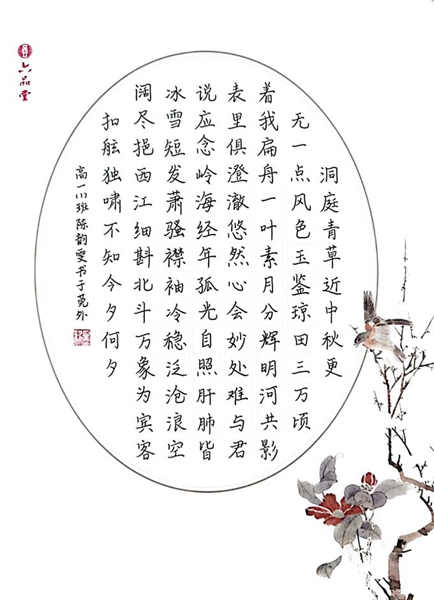 洞庭青草近中秋更
无一点风色玉鉴琼田三万顷
着我扁舟一叶素月分辉明河共影
表里俱澄澈悠然心会妙处难与君
说应念岭海经年孤光自照肝肺皆
冰雪短发萧骚襟袖冷稳泛沧浪空
阔尽挹西江细斟北斗万象为宾客
扣舷独啸不知今夕何夕
高一(1)班陈韵雯书于莞外
六品堂